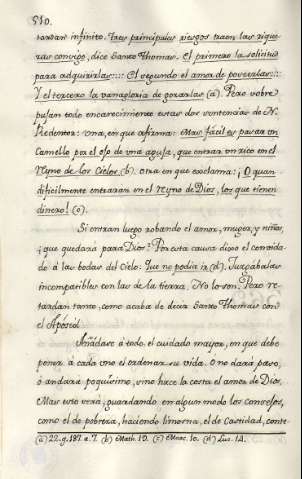 510.
tardan infinito. Tres principales riesgos traen las rique-
ras consigo, dice Santo Thomas. El primero la solicitud
para adquirirlas:::: El segundo el amor de poseerlas:::
Y el tercero la vanagloria de gozarlas (a). Pero sobre
pujan todo encarecimiento estas dos sentencias de N.
Redentor: una, en que afirma: Mas facil es pasar un
Camello por el ojo de una aguja, que entrar un rico en el
Reyno de los Cielos (b). otra en que exclama: ¡O quan
dificilmente entraran en el Reyno de Dios, los que tienen
dinero! (c).
Si entran luego robando el amor, muger, y niños,
¿que quedará para Dios? Por esta causa dixo el convida-
do á las bodas del Cielo: Que no podia ir (d). Juzgabalas
incompatibles con las de la tierra. No lo son. Pero re-
tardan tanto, como acaba de decir Santo Thomas con
el Apóstol.
Añádase á todo el cuidado mayor, en que debe
poner á cada uno el ordenar su vida. O no dará paso,
ó andará poquisimo, si no hace la costa el amor de Dios.
Mas esto será, guardando en algun modo los consejos,
como el de pobreza, haciendo limosna, el de Castidad, conte
(a) 22. q. 187. a. 7. (b) Math. 19. (c) Marc. 10. (d) Luc. 14.